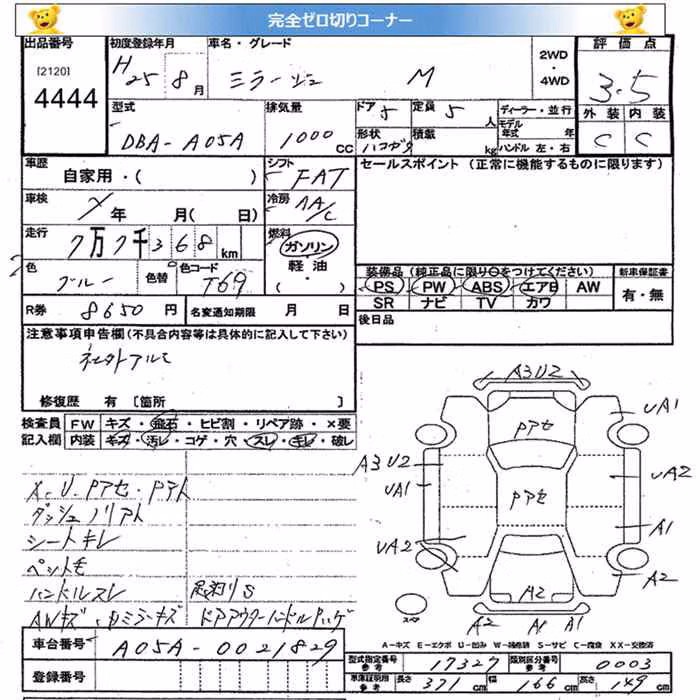 完全ゼロ切りコーナー
出品番号
[2120]
4444
初度登録年月
H
25 8月
車名・グレード
ミラージュ M
2WD
・
4WD
評価点
3.5
外装 内装
C C
型式
DBA-A05A
排気量
1000
CC
ドア 5
定員 5 人
形状
ハコガタ
積載 kg
ディーラー・並行
モデル
年式 年
ハンドル 左・右
車歴
自家用・( )
シフト
FAT
セールスポイント(正常に機能するものに限ります)
車検
年 月( 日)
冷房
AA/C
走行
7万7千368 km
燃料
ガソリン
軽油
・( )
色
ブルー
色替
色コード
T69
装備品(純正品に限り○をつけてください)
PS PW ABS エアB AW
SR ナビ TV カワ
新車保証書
有・無
R券 8650円
名変通知期限 月 日
後日品
注意事項申告欄(不具合内容等は具体的に記入して下さい)
社外アルミ
修復歴 有〔箇所 〕
検査員
記入欄
FW キズ・飛石・ヒビ割・リペア跡・×要
内装 キズ・汚レ・コゲ・穴・スレ・キレ・破レ
X.U.Pアセ・Pテト
ダッシュノリアト
シートキレ
ペット毛
ハンドルスレ
AWキズ・
ミラーキズ
ドアアウターハンドルハゲ
A3U2
UA1
Pアセ
A3U2
UA1
UA2
Pアセ
A1
UA2
A2
A2
スペア
A2 A1 A1
A-キズ E-エクボ U-凹み W-補修跡 S-サビ C-腐食 XX-交換済
車台番号 A05A-0021829
登録番号
型式指定番号
参考
17327
類別区分番号
参考
0003
車庫証明用
参考
長さ 371cm
幅 166cm
高さ 149cm